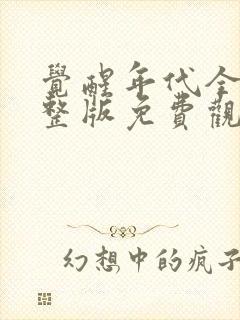 覺醒年代全
整版免費觀
幻想中的疯子